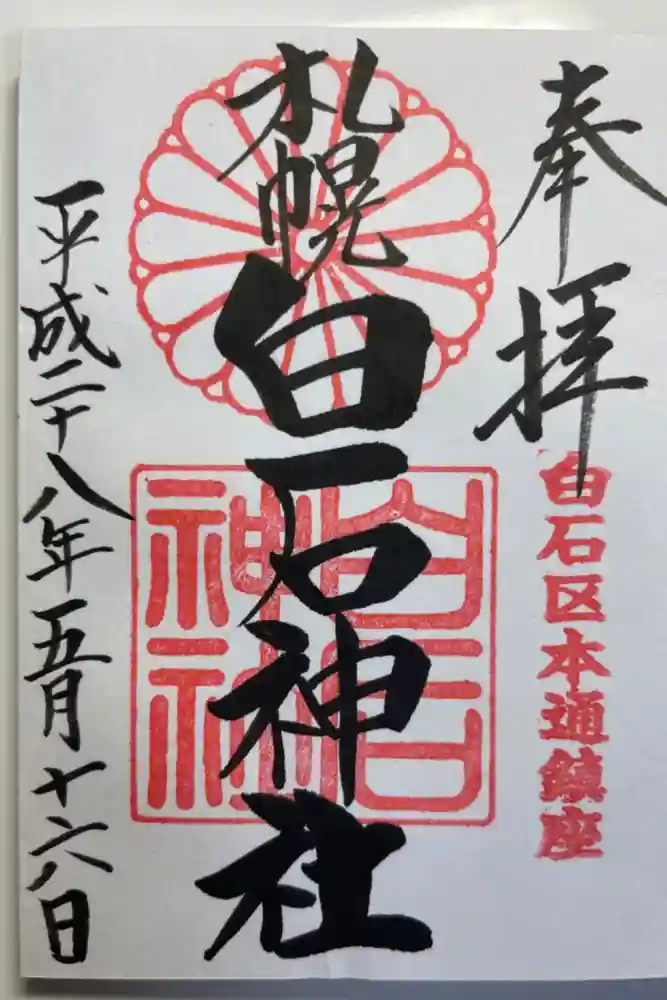 奉拝
白石区本通鎮座
札幌
白石神社
白石神社
平成二十八年五月十六日